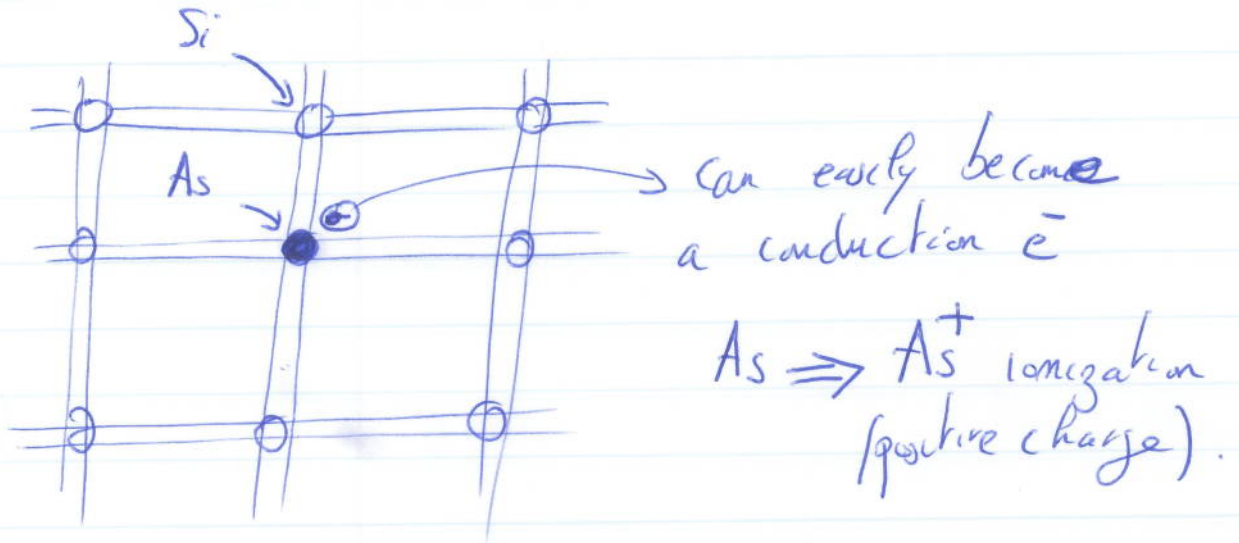 Si
As
can easily become
a conduction e̅
As ⇒ As⁺ ionization
(positive charge).